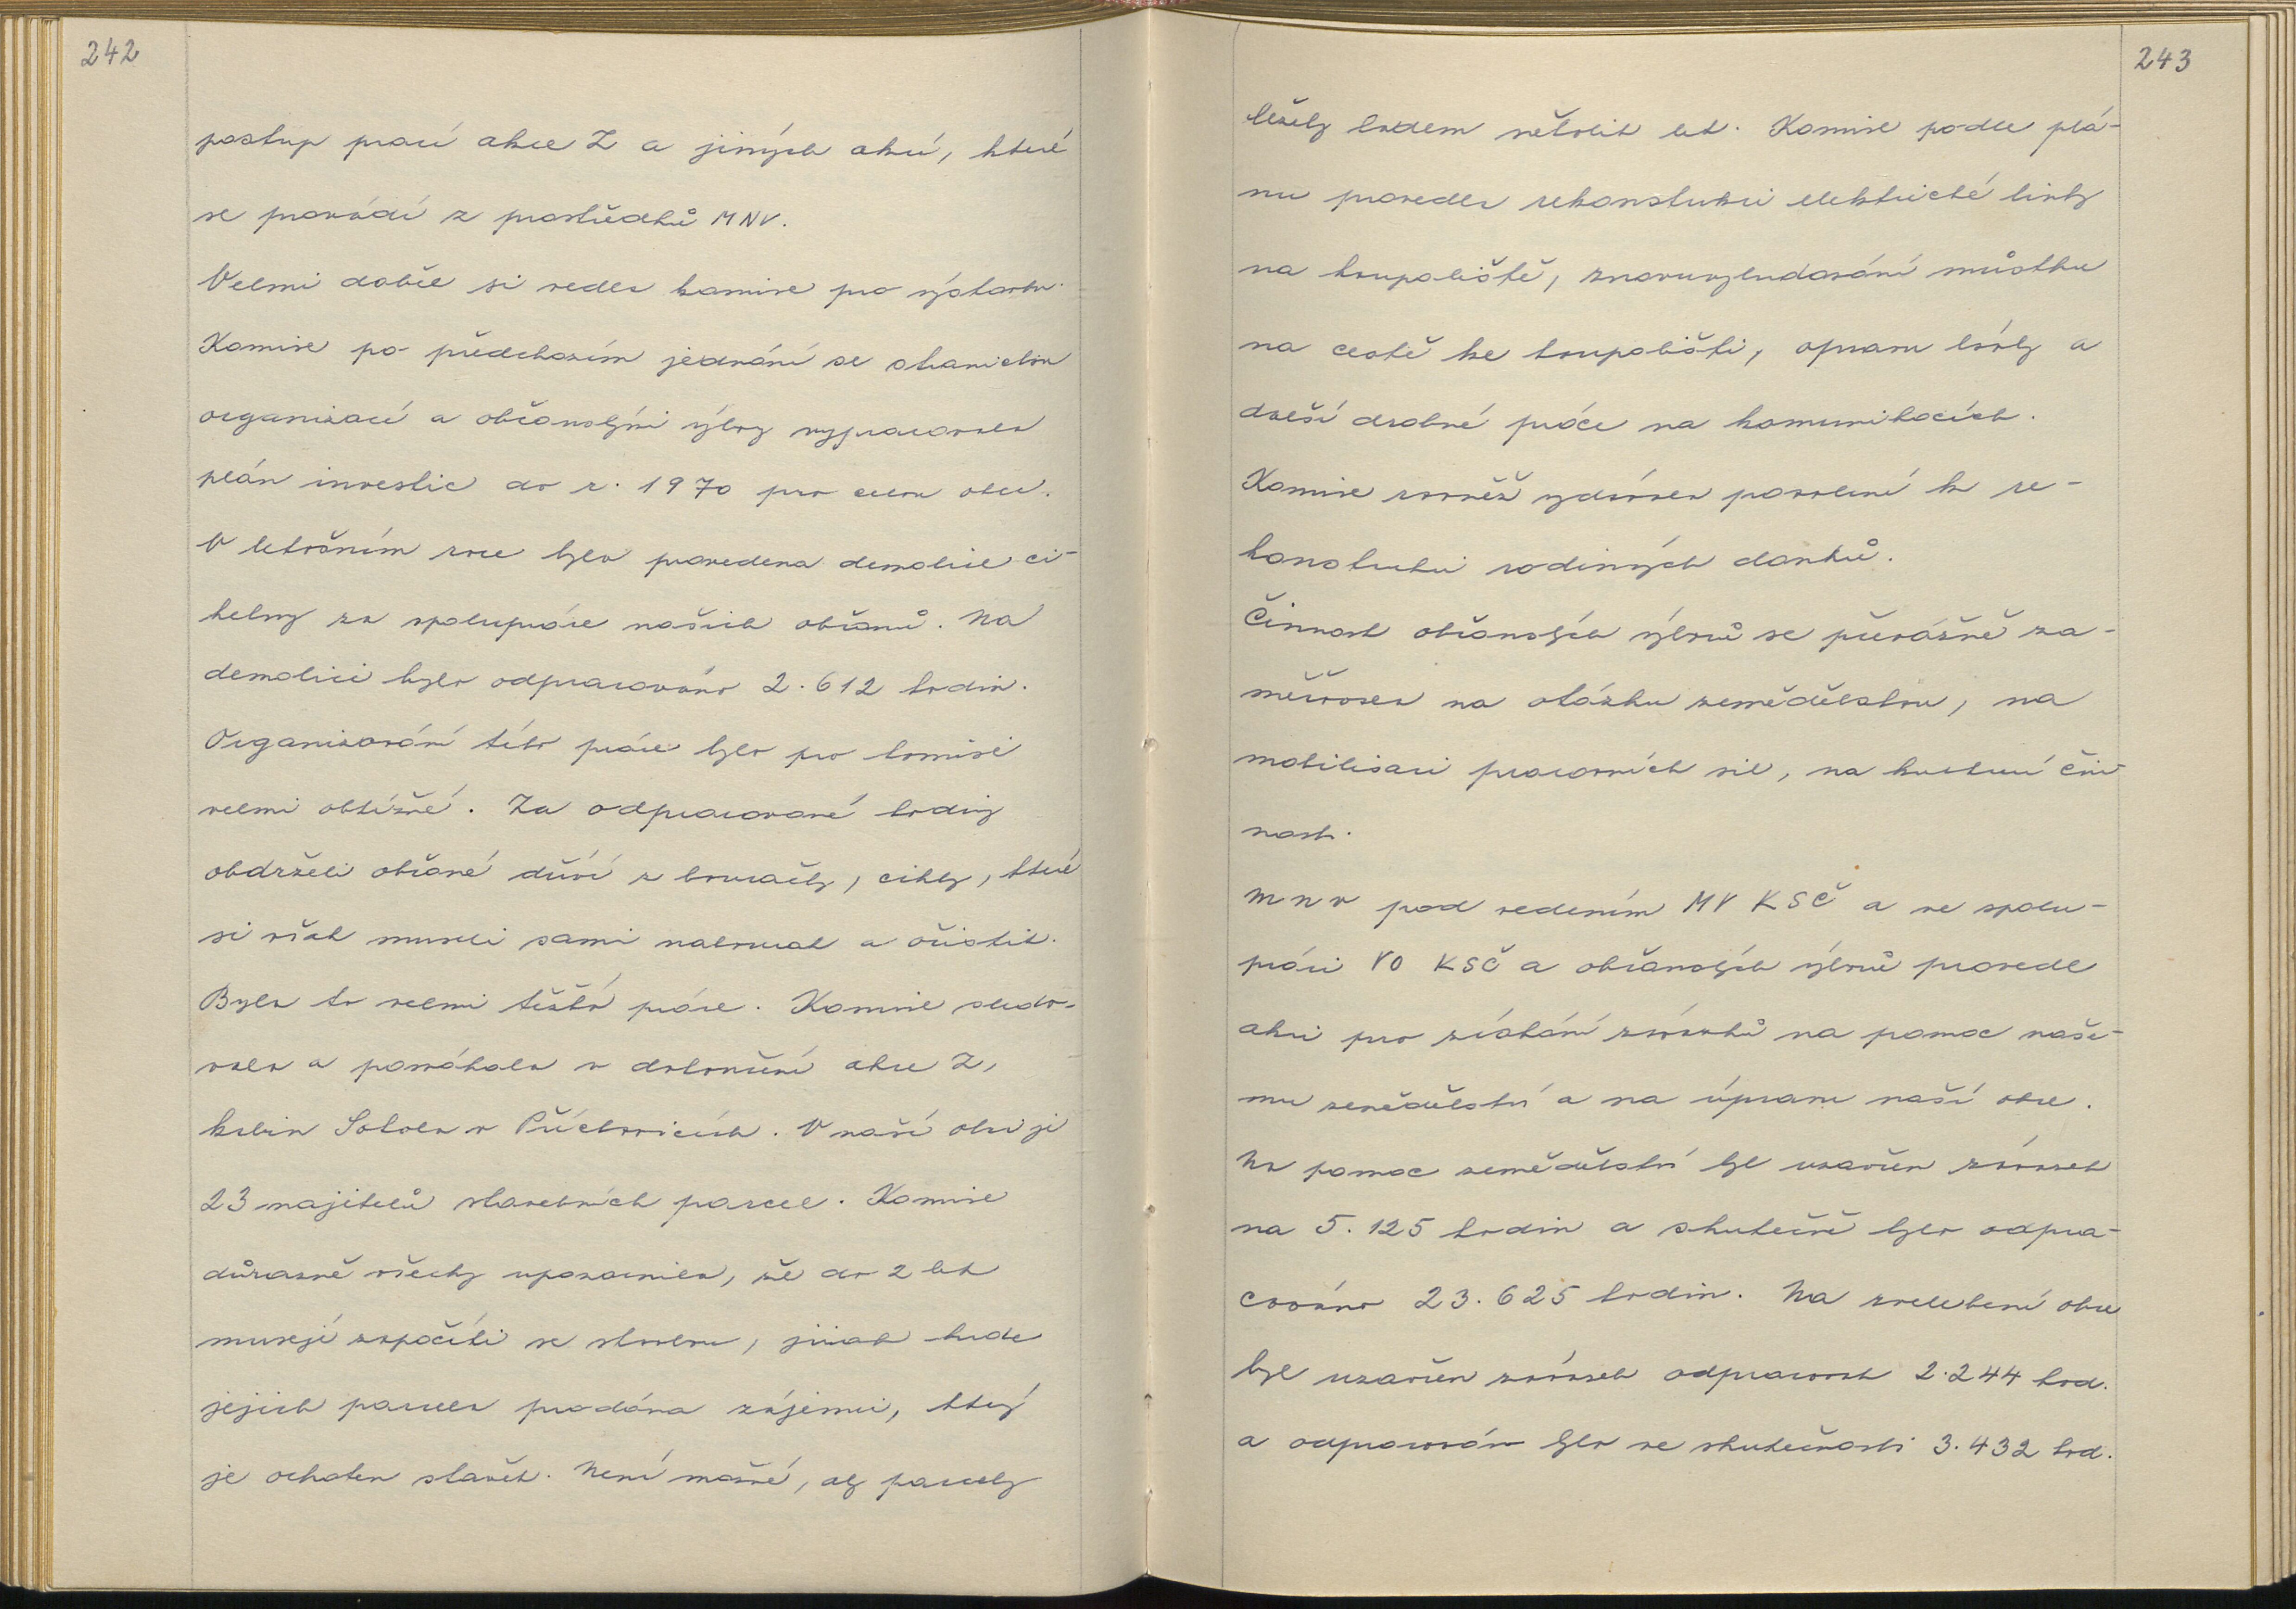 242
postup prací akce Z a jiných akcí, které
se provádí z prostředků MNV.
Velmi dobře si vedla komise pro výstavbu.
Komise po předchozím jednání se stranickou
organizací a občanskými výbory vypracovala
plán investic do r. 1970 pro celou obec.
V letošním roce byla provedena demolice ci-
helny za spolupráce našich občanů. Na
demolici bylo odpracováno 2.612 hodin.
Organizování této práce bylo pro komisi
velmi obtížné. Za odpracované hodiny
obdrželi občané dříví z bouračky, cihly, které
si však museli sami nabourat a očistit.
Byla to velmi těžká práce. Komise sledo-
vala a pomáhala v dokončení akce Z,
kabin Sokola v Příchovicích. V naší obci je
23 majitelů stavebních parcel. Komise
důrazně všechny upozornila, že do 2 let
musejí započíti se stavbou, jinak bude
jejich parcela prodána zájemci, který
je ochoten stavět. Není možné, aby parcely
243
ležely ladem několik let. Komise podle plá-
nu provedla rekonstrukci elektrické linky
na koupaliště, znovuvybudování můstku
na cestě ke koupališti, opravu lávky a
další drobné práce na komunikacích.
Komise rovněž vydávala povolení k re-
konstrukci rodiných domků.
Činnost občanských výborů se převážně za-
měřovala na otázku zemědělství, na
mobilisaci pracovních sil, na kulturní čin-
nost.
MNV pod vedením MV KSČ a ve spolu-
práci VO KSČ a občanských výborů provedl
akci pro získání závazků na pomoc naše-
mu zemědělství a na úpravu naší obce.
Na pomoc zemědělství byl uzavřen závazek
na 5.125 hodin a skutečně bylo odpra-
cováno 23.625 hodin. Na zvelebení obce
byl uzavřen závazek odpracovat 2.244 hod.
a odpracováno bylo ve skutečnosti 3.432 hod.